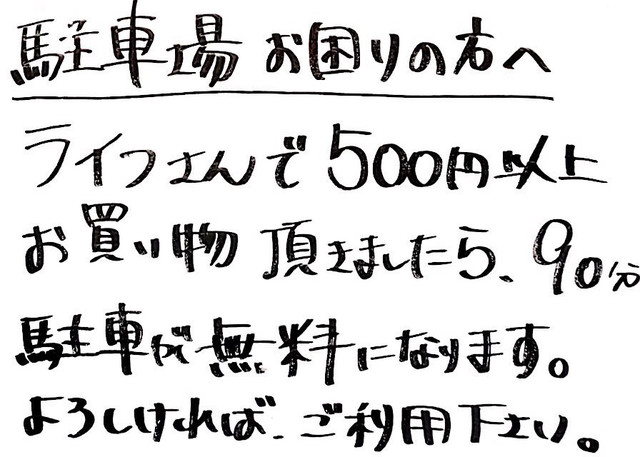 駐車場 お困りの方へ
ライフさんで500円以上
お買い物 頂きましたら、90分
駐車が無料になります。
よろしければ、ご利用下さい。